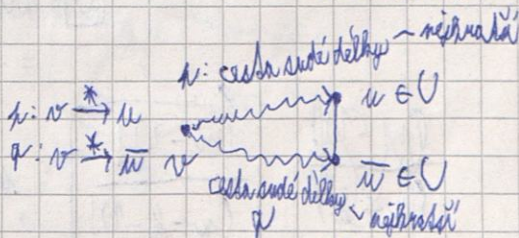 p: cesta sudé délky ~ nejkratší
p: v →* u
u ∈ U
q: v →* u̅
v
u̅ ∈ U
cesta sudé délky ~ nejkratší
q